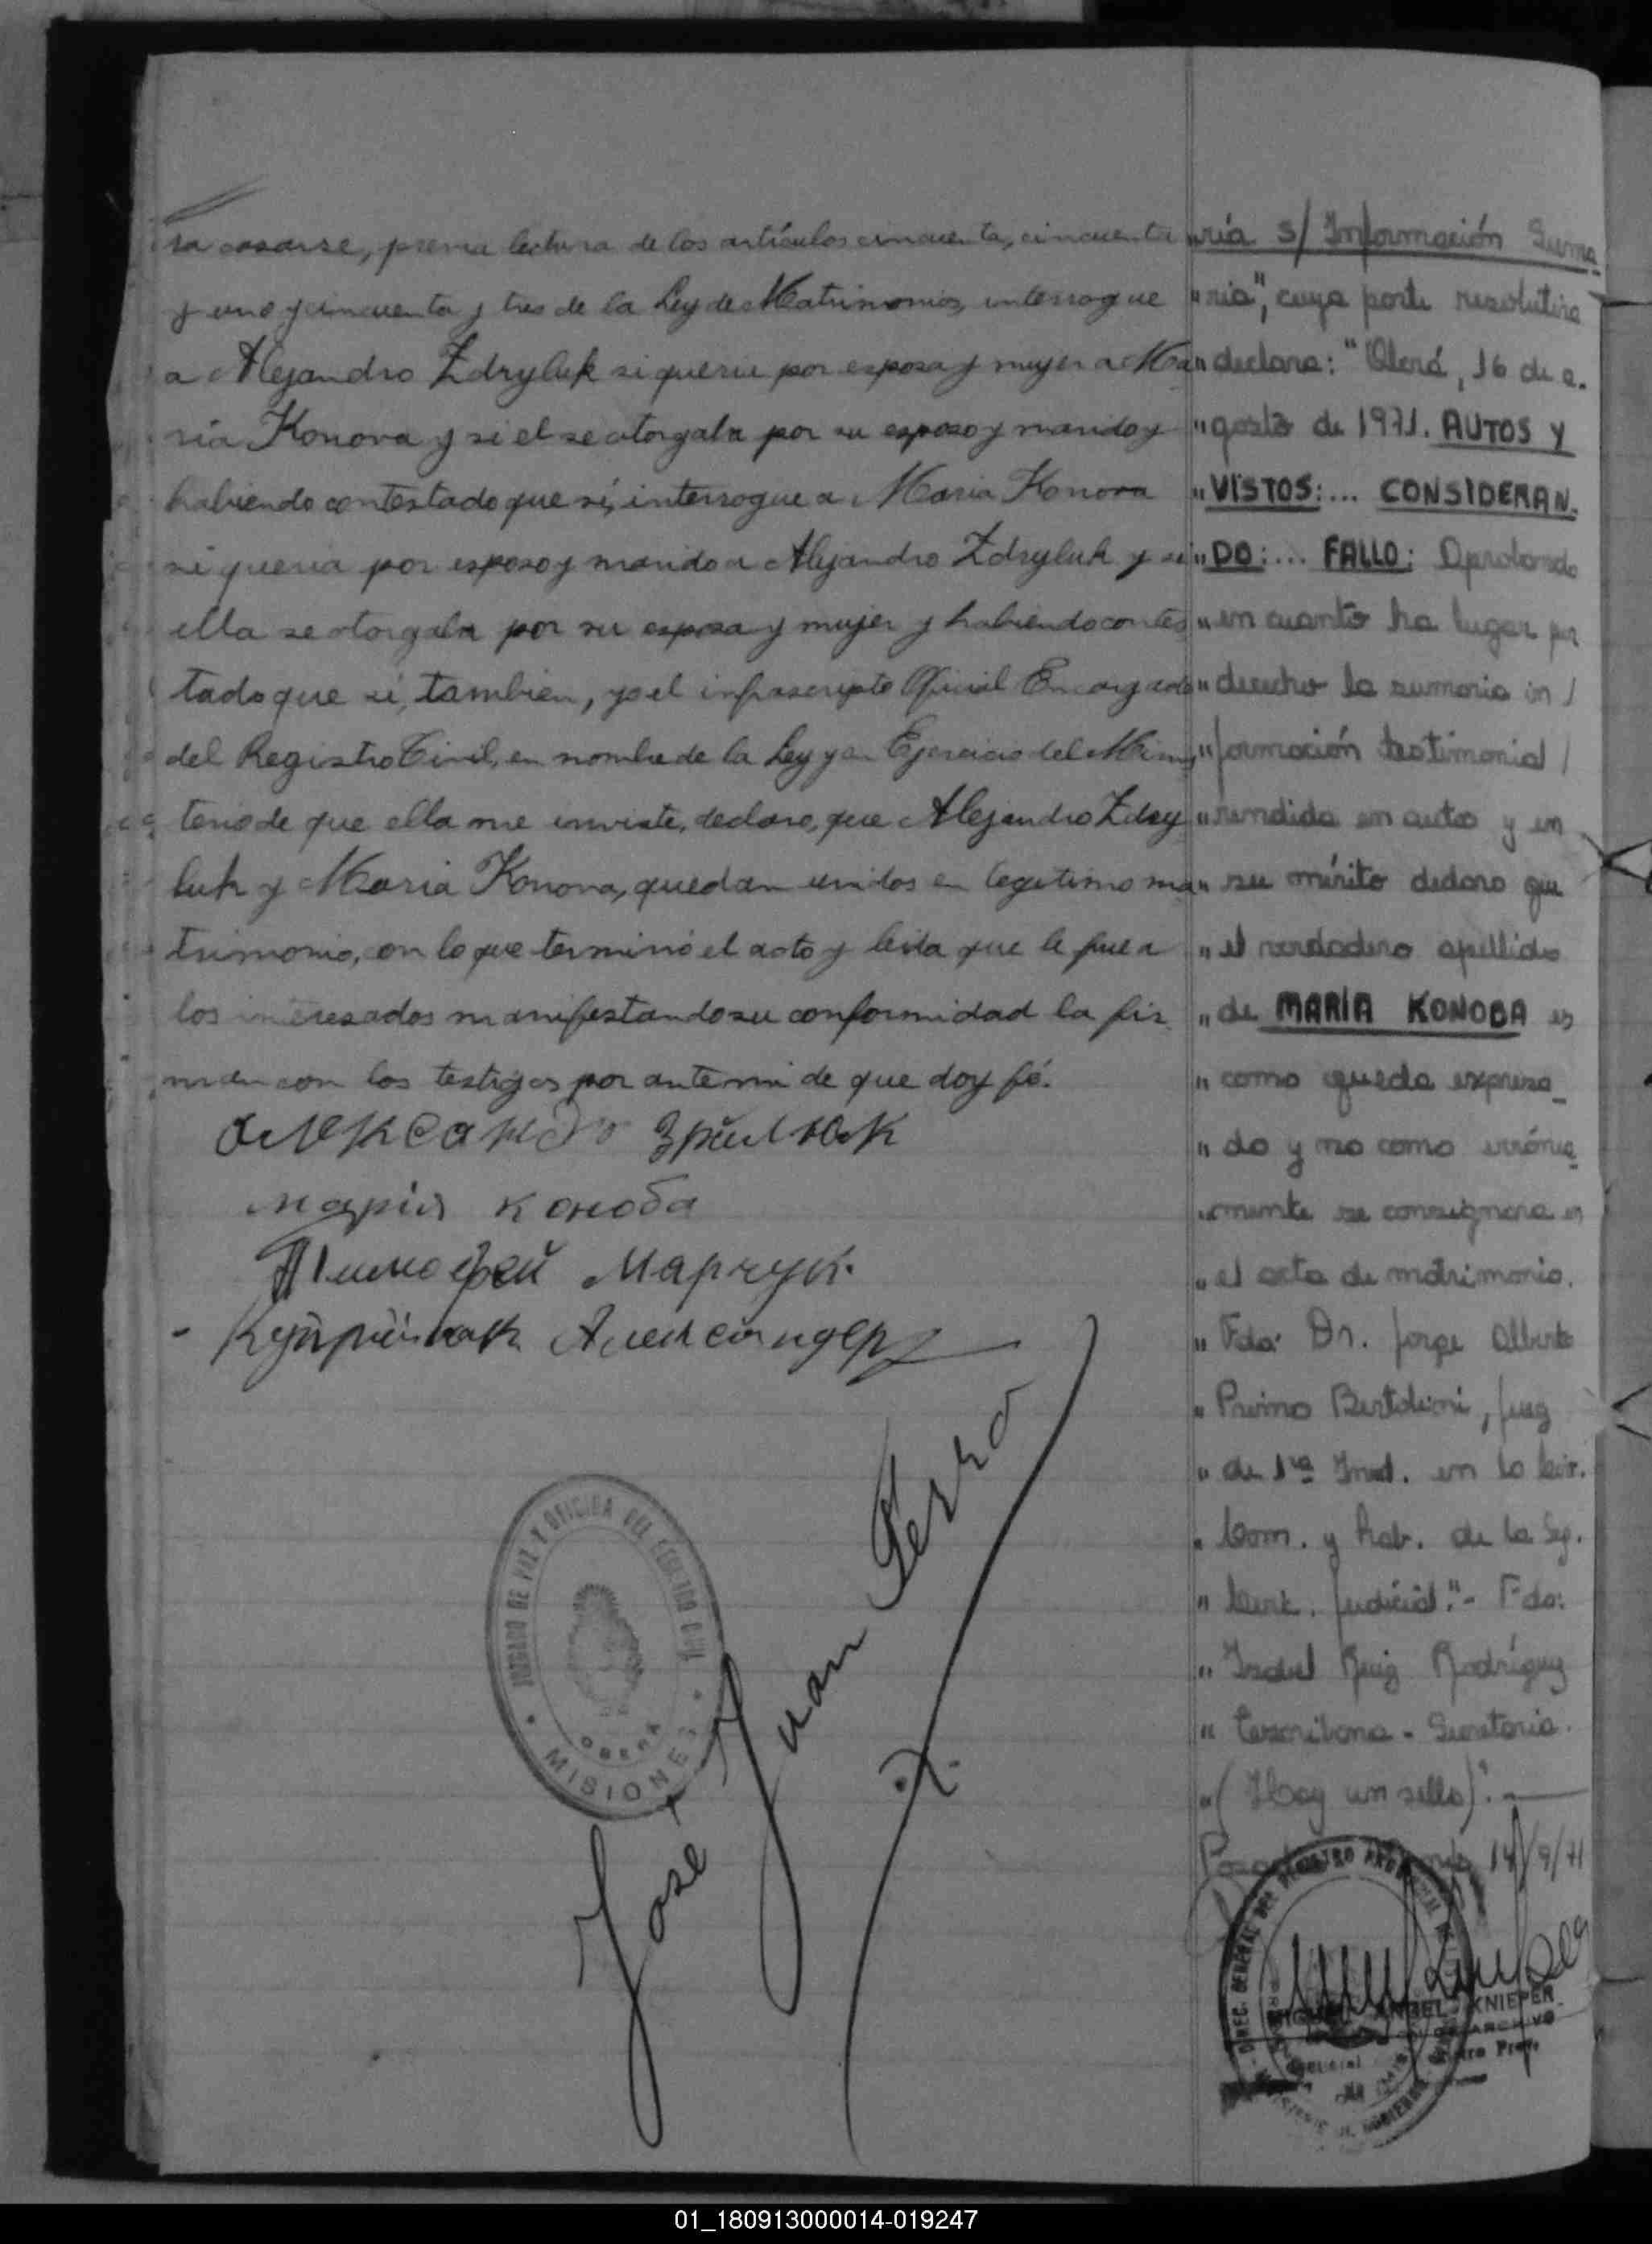 ra casarse, previa lectura de los artículos cincuenta, cincuenta
y uno y cincuenta y tres de la Ley de Matrimonio, interrogue
a Alejandro Zdryluk si queria por esposa y mujer a Ma
ria Konova y si el se otorgaba por su esposo y marido y
habiendo contestado que sí, interrogue a Maria Konova
si queria por esposo y marido a Alejandro Zdryluk y si
ella se otorgaba por su esposa y mujer y habiendo contes
tado que sí, tambien, yo el infrascripto Oficial Encargado
del Registro Civil, en nombre de la Ley y en Ejercicio del Minis
terio de que ella me inviste, declaro, que Alejandro Zdry
luk y Maria Konova, quedan unidos en legitimo ma
trimonio, con lo que terminó el acto y leida que le fue a
los interesados manifestando su conformidad la fir
man con los testigos por ante mi de que doy fé.
Александр Зрилюк
Марія Коноба
Тимофей Марчук.
- Купрійчак Александер
JUZGADO DE PAZ Y OFICINA DEL REGISTRO CIVIL
OBERA
MISIONES
Jose Juan Ferro
ría s/ Información Suma-
"ria", cuya parte resolutiva
" declara: "Oberá, 16 de a-
" gosto de 1971. AUTOS Y
" VISTOS:... CONSIDERAN-
" DO:... FALLO: Aprobando
" en cuanto ha lugar por
" derecho la sumaria in /
" formación testimonial /
" rendida en autos y en
" su mérito declaro que
" el verdadero apellido
" de MARIA KONOBA es
" como queda expresa_
" do y no como errónea_
" mente se consignara en
" el acta de matrimonio.
" Fdo: Dr. Jorge Alberto
" Primo Bertolini, Juez
" de 1ra Inst. en lo Civ.
" Com. y Lab. de la Seg.
" Circ. Judicial."- Fdo:
" Isabel Ruiz Rodríguez
" Escribana - Secretaria.
" (Hay un sello)".
14/9/71
DIREC. GENERAL DEL REGISTRO PROVINCIAL
MIGUEL ANGEL KNIEPER
ARCHIVO
01_180913000014-019247